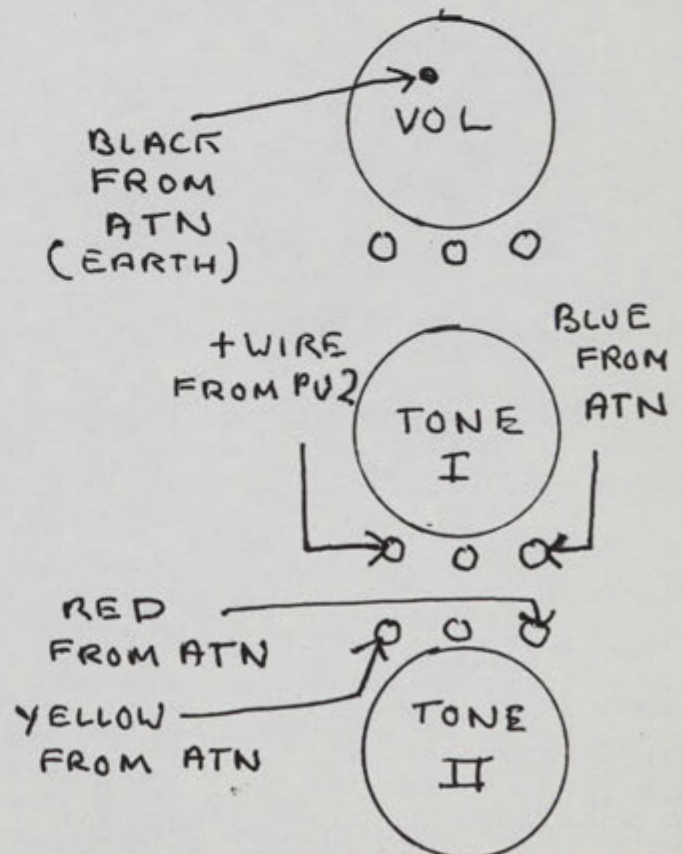 VOL
BLACK
FROM
ATN
(EARTH)
+WIRE
FROM PU2
BLUE
FROM
ATN
TONE
I
RED
FROM ATN
YELLOW
FROM ATN
TONE
II